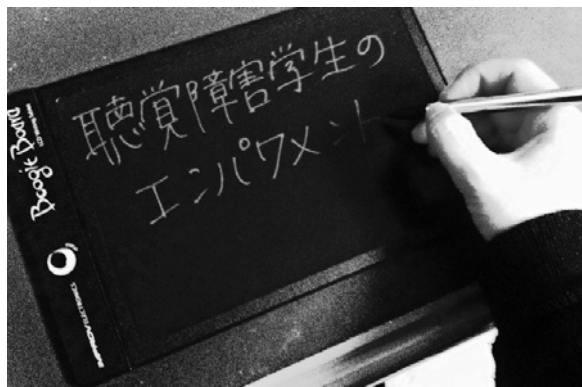 聴覚障害学生の
エンパワメント
Boogie Board
IMPROV ELECTRONICS